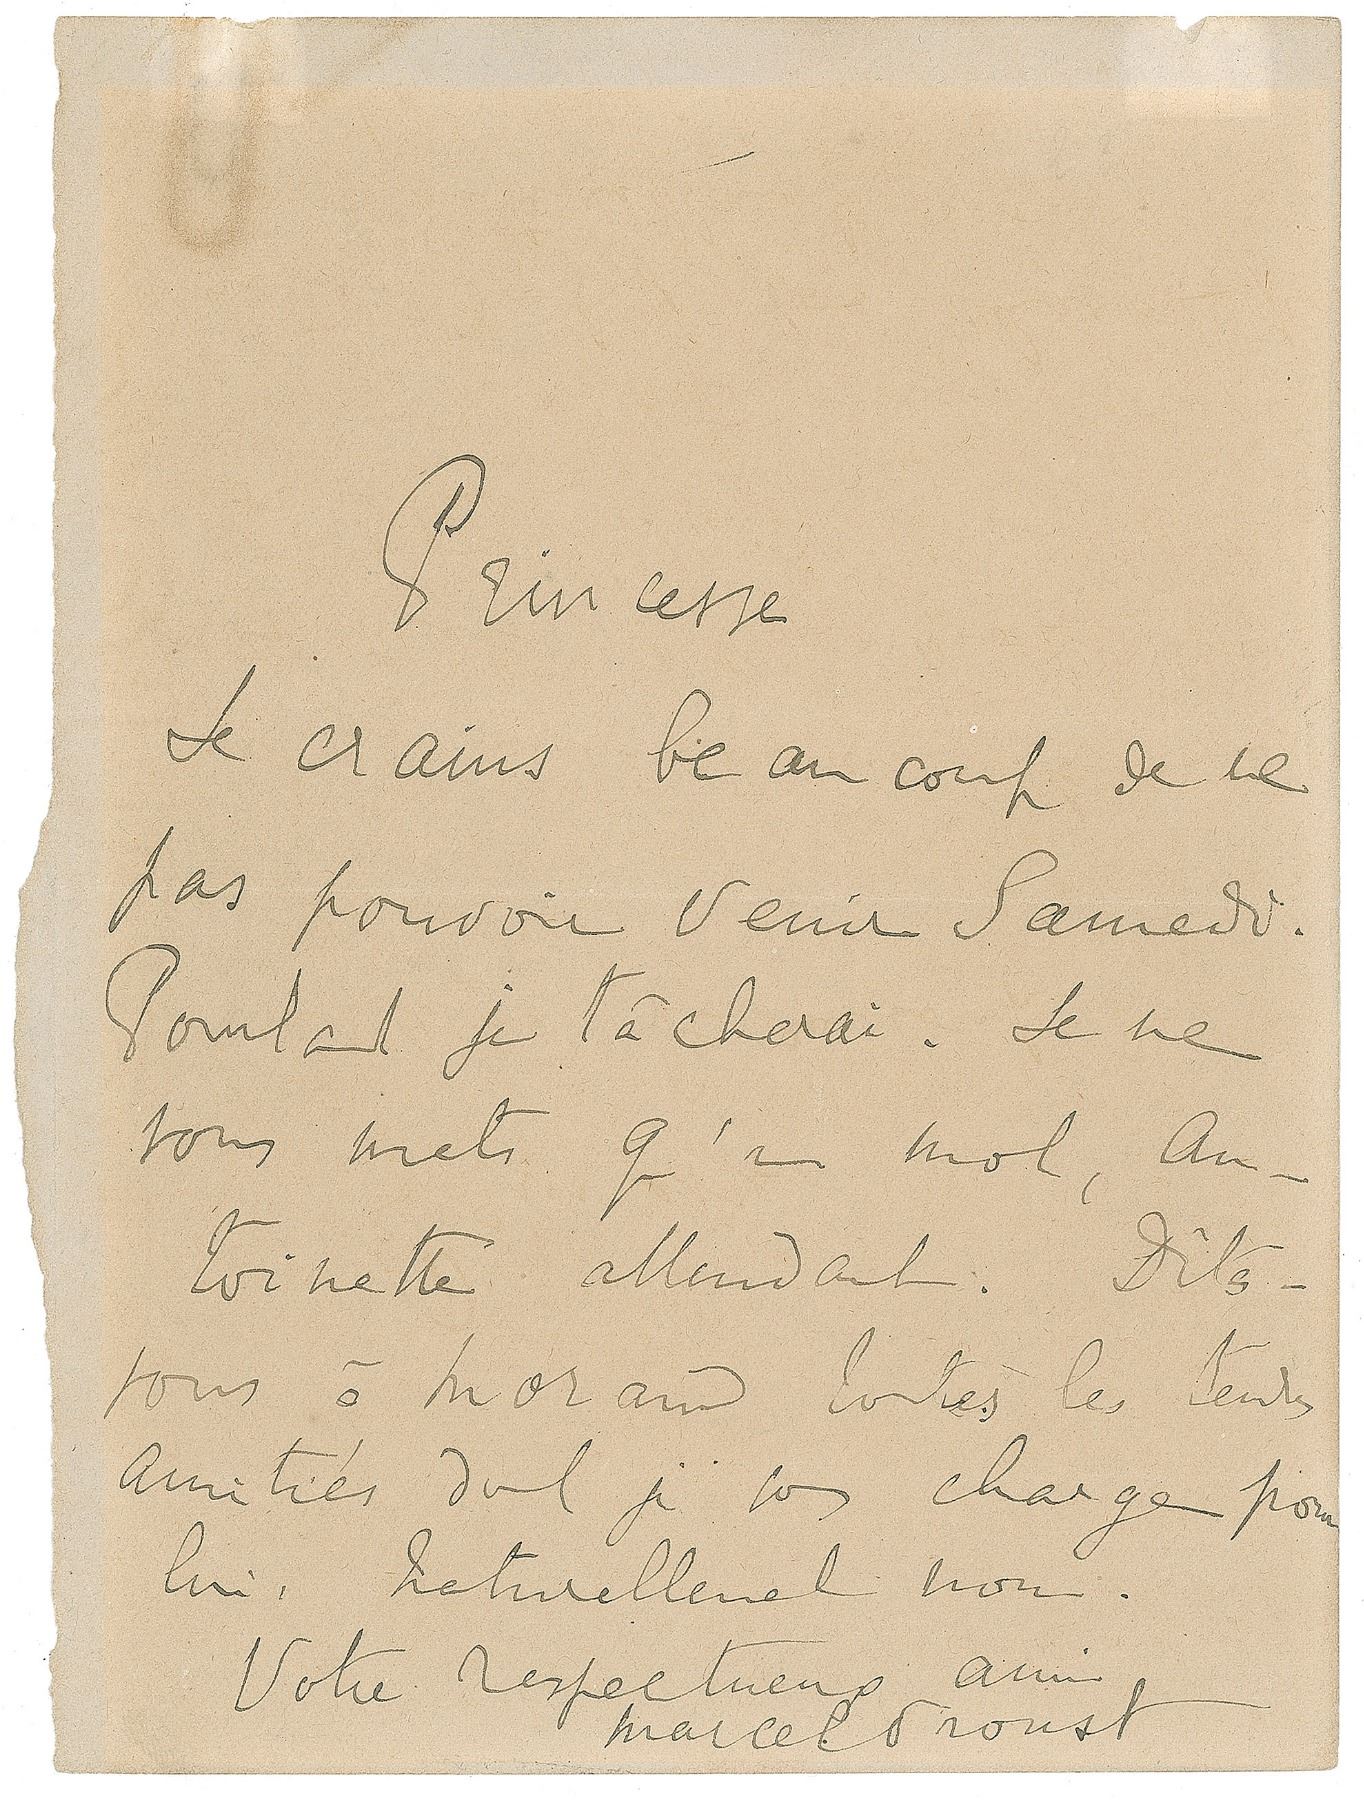 Princesse
Je crains beaucoup de ne
pas pouvoir venir Samedi.
Pourtant je tâcherai. Je ne
vous mets qu'un mot, An-
toinette attendant. Dites-
vous à Morand toutes les tendres
amitiés dont je vous charge pour
lui. Naturellement non.
Votre respectueux ami
Marcel Proust